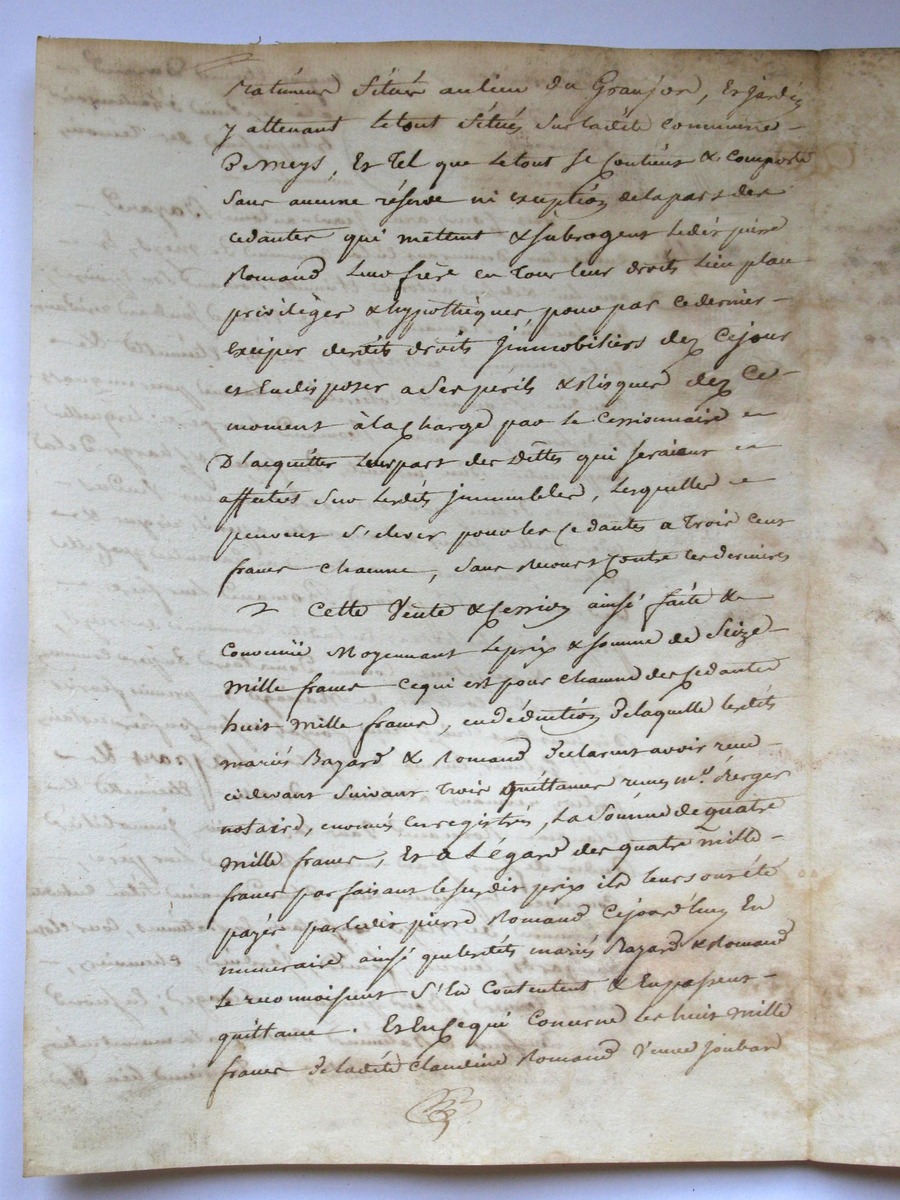 Batiment Situés au lieu du Granjon, Et jardin
y attenant le tout Situés Sur ladite commune
De meys, Et Tel que le tout Se Contient & comporte
Sans aucune réserve ni exception de la part des
cedantes qui mettent & Subrogent ledit pierre
Romand Leur frère en Tous leur droits Lieu place
privilèges & hypothèques, pour par ce dernier
exciper desdits droits jmmobiliers dez Cejour
et En disposer a Ses perils & Risques dez Ce
moment à la Charge par le Cessionnaire
D'acquitter leur part des Dettes qui Seraient
affectées Sur lesdits jmmeubles, Lesquelles
peuvent S'elever pour les Cedantes a Trois Cent
francs Chacune, Sans Recours Contre les dernieres
Cette Vente & Cession ainsi faite &
Convenüe Moyennant le prix & Somme de Seize
Mille francs Cequi est pour Chacune des Cedantes
huit Mille francs, en déduction de laquelle lesdits
mariés Bazard & Romand declarent avoir recu
cidevant Suivant Trois Quittances recues mr.
notaire, enregistrés, La Somme de quatre
Mille francs, Et a L'égard des quatre mille
francs parfaisant le Susdit prix ils leurs ont été
payés par ledit pierre Romand Cejourd'huy En
numeraire ainsi que lesdits mariés Bazard & Romand
le reconnoissent S'En Contentent & En passent
quittance. Et En Cequi Concerne les huit Mille
francs De ladite Claudine Romand Veuve Joubard